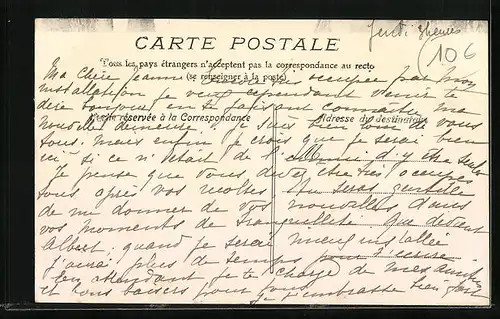 Jeudi 3 heures
106
CARTE POSTALE
Tous les pays étrangers n'acceptent pas la correspondance au recto
(se renseigner à la poste)
Partie réservée à la Correspondance
Adresse du destinataire
Ma Chère Jeanne occupée par mon
installation je veux cependant venir te
dire bonjour en te faisant connaître ma
nouvelle demeure. Je suis loin de vous
tous. mais enfin je crois que je serai bien
ici si ce n'était de l'ennui d'y être seule
je pense que vous devez être très occupés
tous après vos récoltes tu seras gentille
de me donner de vos nouvelles dans
vos moments de tranquillité que devient
Albert. quand je serai mieux installée
j'aurai plus de temps pour t'écrire
En attendant je te charge de mes amitiés
et bons baisers pour tous je t'embrasse bien fort